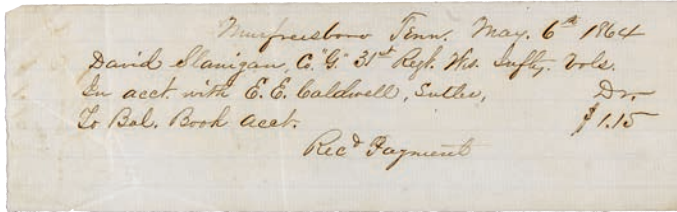 Murfreesboro Tenn. May. 6th 1864
David Flanigan, Co. "G." 31st Regt. Wis. Infty. Vols.
In acct. with E. E. Caldwell, Sutler, Dr.
To Bal. Book acct. $1.15
Recd Payment